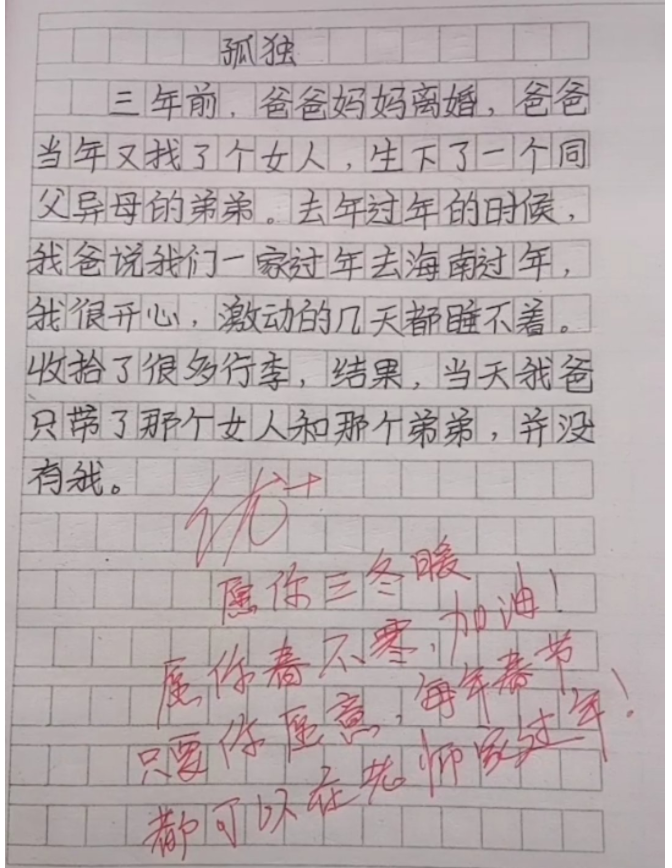 孤独
三年前，爸爸妈妈离婚，爸爸
当年又找了个女人，生下了一个同
父异母的弟弟。去年过年的时候，
我爸说我们一家过年去海南过年，
我很开心，激动的几天都睡不着。
收拾了很多行李，结果，当天我爸
只带了那个女人和那个弟弟，并没
有我。
优+
愿你三冬暖
愿你春不寒，加油！
只要你愿意，每年春节
都可以在老师家过年！